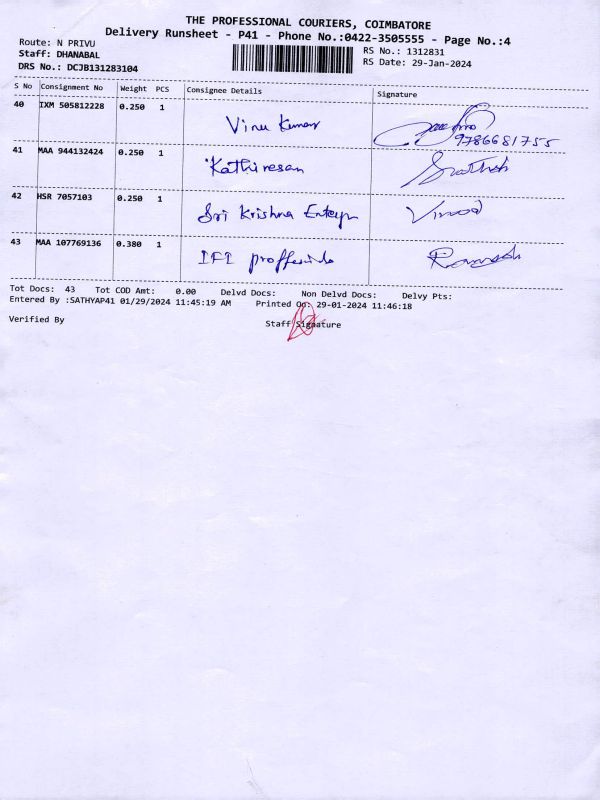 THE PROFESSIONAL COURIERS, COIMBATORE
Delivery Runsheet - P41 - Phone No.:0422-3505555 - Page No.:4
Route: N PRIVU
RS No.: 1312831
Staff: DHANABAL
RS Date: 29-Jan-2024
DRS No.: DCJB131283104
S No Consignment No Weight PCS Consignee Details Signature
40 IXM 505812228 0.250 1 Vinu Kumar
9786681755
41 MAA 944132424 0.250 1 Kathiresan
42 HSR 7057103 0.250 1 Sri Krishna Vinod
43 MAA 107769136 0.380 1 IFI Ramesh
Tot Docs: 43 Tot COD Amt: 0.00 Delvd Docs: Non Delvd Docs: Delvy Pts:
Entered By :SATHYAP41 01/29/2024 11:45:19 AM Printed On: 29-01-2024 11:46:18
Verified By Staff Signature